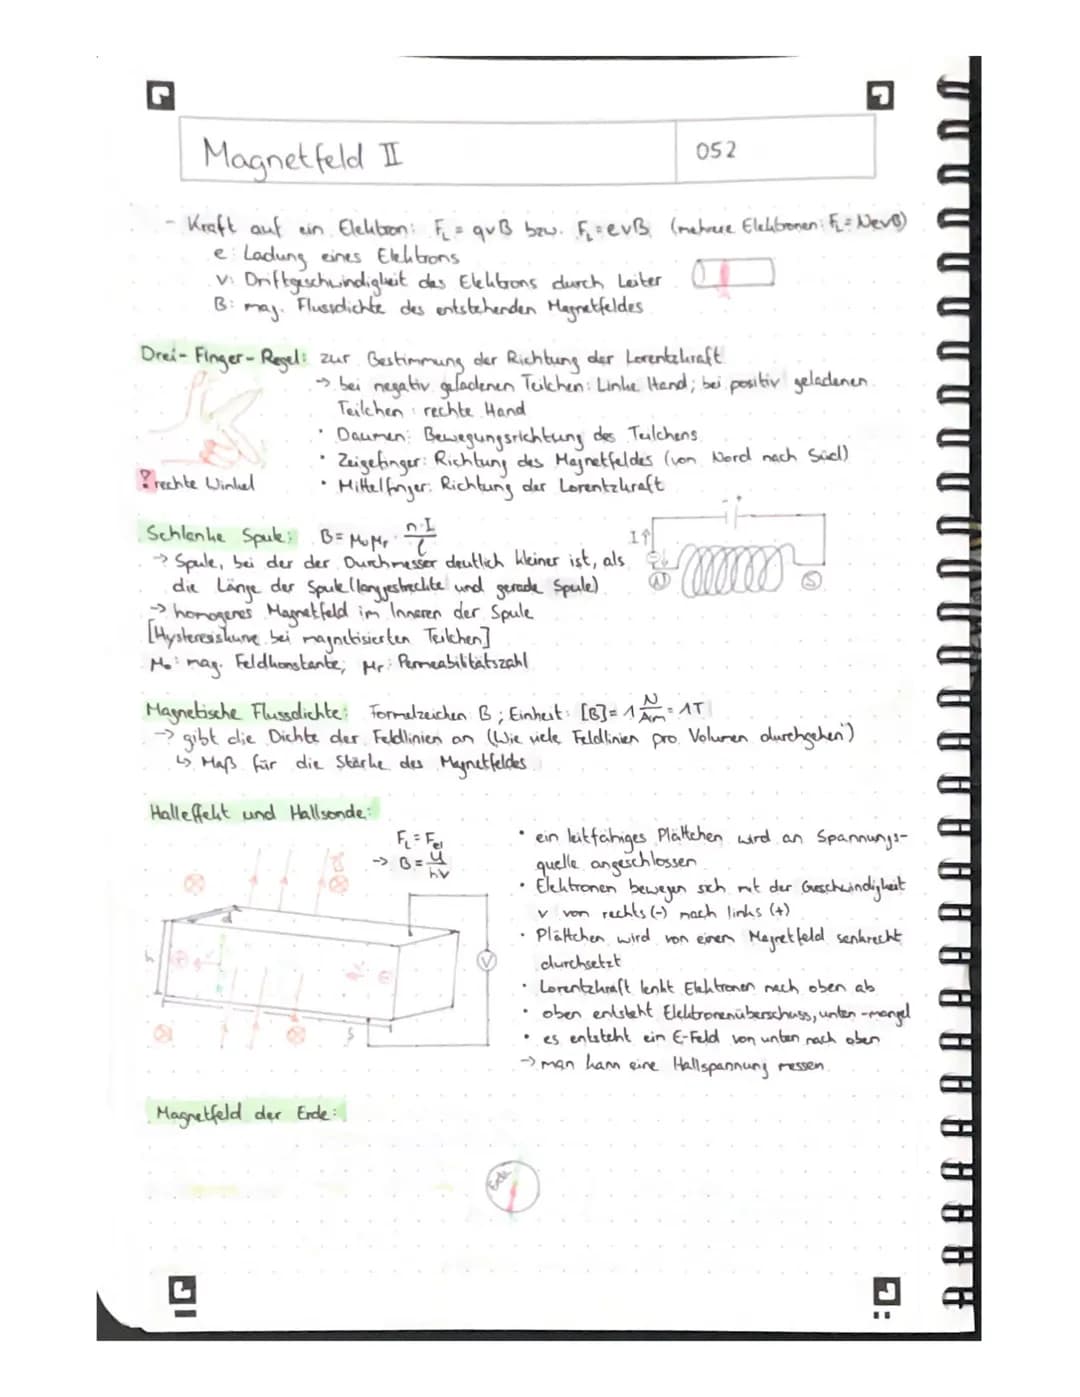 Magnetfeld II
052
- Kraft auf ein Elektron: F_L = qvB bzw. F_L = evB (mehrere Elektronen: F_L = NevB)
e: Ladung eines Elektrons
v: Driftgeschwindigkeit des Elektrons durch Leiter
B: mag. Flussdichte des entstehenden Magnetfeldes
Drei-Finger-Regel: zur Bestimmung der Richtung der Lorentzkraft
→ bei negativ geladenen Teilchen: Linke Hand; bei positiv geladenen
Teilchen: rechte Hand
• Daumen: Bewegungsrichtung des Teilchens
• Zeigefinger: Richtung des Magnetfeldes (von Nord nach Süd)
? rechte Winkel
• Mittelfinger: Richtung der Lorentzkraft
Schlanke Spule: B = μ₀μᵣ · n·I/l
I↑
→ Spule, bei der der Durchmesser deutlich kleiner ist, als
die Länge der Spule (langgestreckte und gerade Spule)
N
S
→ homogenes Magnetfeld im Inneren der Spule
[Hysteresiskurve bei magnetisierten Teilchen]
μ₀: mag. Feldkonstante; μᵣ: Permeabilitätszahl
Magnetische Flussdichte: Formelzeichen: B; Einheit: [B] = 1 N/Am = 1T
→ gibt die Dichte der Feldlinien an ("Wie viele Feldlinien pro Volumen durchgehen")
↳ Maß für die Stärke des Magnetfeldes
Halleffekt und Hallsonde:
F_L = F_el
→ B = U/hv
• ein leitfähiges Plättchen wird an Spannungs-
quelle angeschlossen
• Elektronen bewegen sich mit der Geschwindigkeit
v von rechts (-) nach links (+)
• Plättchen wird von einem Magnetfeld senkrecht
durchsetzt
• Lorentzkraft lenkt Elektronen nach oben ab
• oben entsteht Elektronenüberschuss, unten -mangel
• es entsteht ein E-Feld von unten nach oben
→ man kann eine Hallspannung messen
d
h
V
s
Magnetfeld der Erde:
Erde